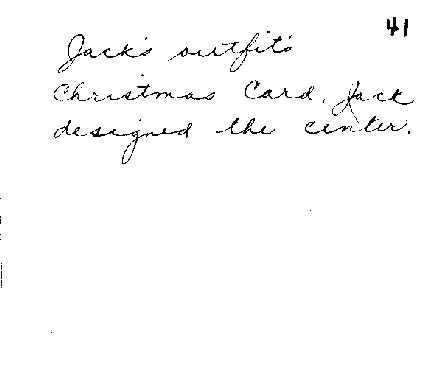 41
Jack's outfit's
Christmas Card. Jack
designed the center.